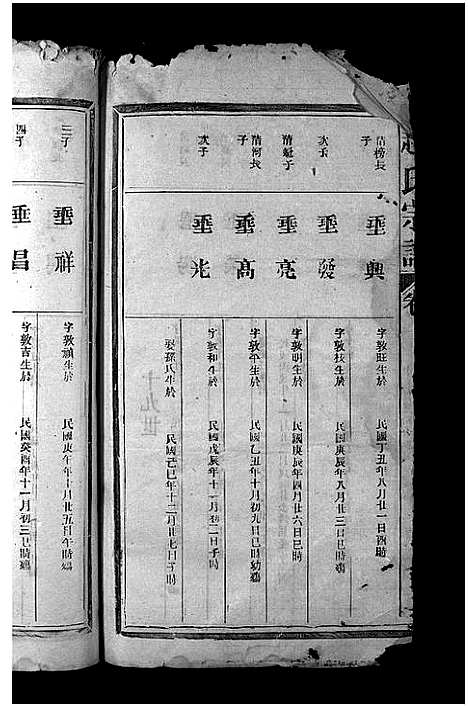 氏宗譜 卷
清榜長子
垂興
字敦旺生於 民國丁丑年八月廿一日酉時
次子
垂發
字敦枝生於 民國庚辰年八月廿三日巳時
清魁子
垂亮
字敦明生於 民國庚辰年四月廿六日巳時
清河長子
垂高
字敦平生於 民國乙丑年十月初九日巳時幼殤
次子
垂光
字敦和生於 民國戊辰年十一月初二日子時
娶孫氏生於 民國己巳年十二月廿七日子時
十九世
三子
垂祥
字敦禎生於 民國庚午年十月廿五日午時殤
四子
垂昌
字敦吉生於 民國癸酉年十一月初三巳時殤